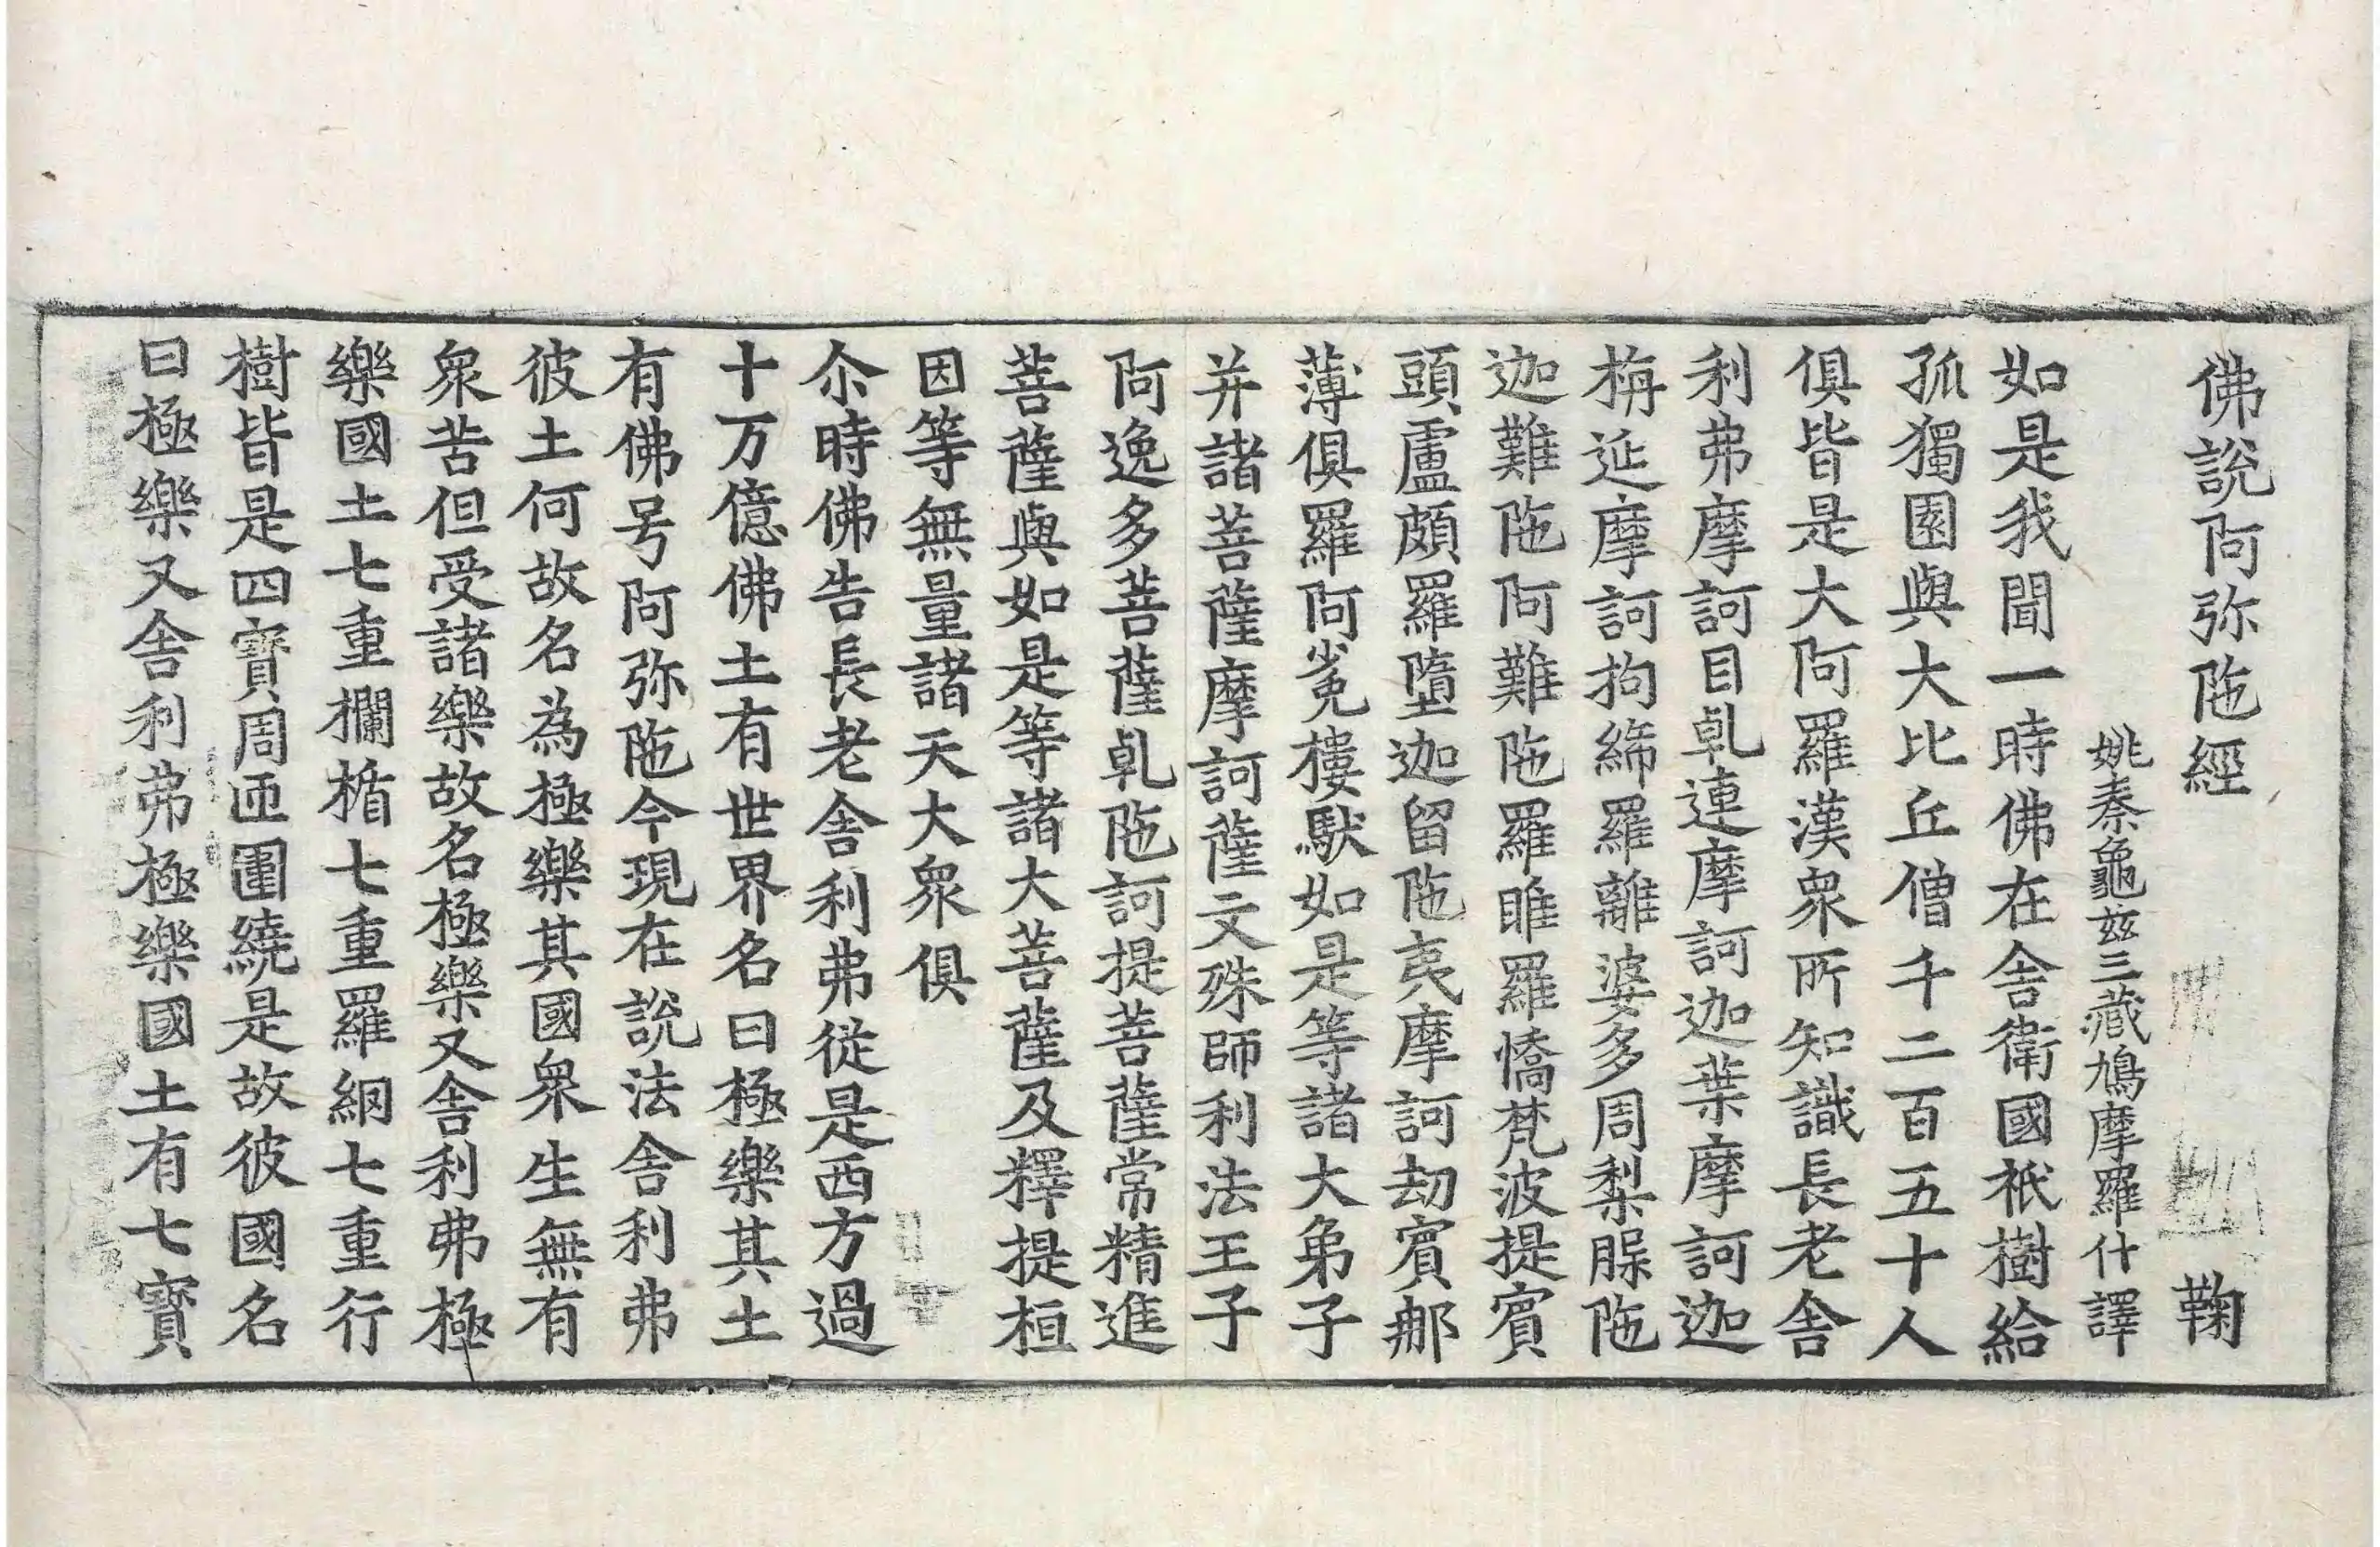 佛說阿弥陁經 鞠
姚秦龜玆三藏鳩摩羅什譯
如是我聞一時佛在舍衛國祇樹給
孤獨園與大比丘僧千二百五十人
俱皆是大阿羅漢衆所知識長老舍
利弗摩訶目乹連摩訶迦葉摩訶迦
栴延摩訶拘絺羅離婆多周梨腂陁
迦難陁阿難陁羅睺羅憍梵波提賓
頭盧頗羅墮迦留陁夷摩訶劫賓那
薄俱羅阿㝹樓馱如是等諸大弟子
并諸菩薩摩訶薩文殊師利法王子
阿逸多菩薩乹陁訶提菩薩常精進
菩薩與如是等諸大菩薩及釋提桓
因等無量諸天大衆俱
尒時佛告長老舍利弗從是西方過
十万億佛土有世界名曰極樂其土
有佛号阿弥陁今現在說法舍利弗
彼土何故名為極樂其國衆生無有
衆苦但受諸樂故名極樂又舍利弗極
樂國土七重欄楯七重羅網七重行
樹皆是四寶周匝圍繞是故彼國名
曰極樂又舍利弗極樂國土有七寶